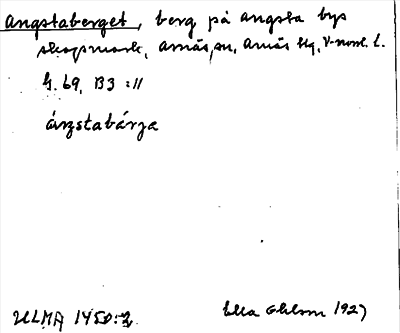 Angstaberget, berg på Angsta bys
skogsmark, Arnäs sn, Arnäs tg, V-norrl. l.
G. 69, B3 :11
áŋstabárja
ULMA 1450:2. Ella Ohlson 1927